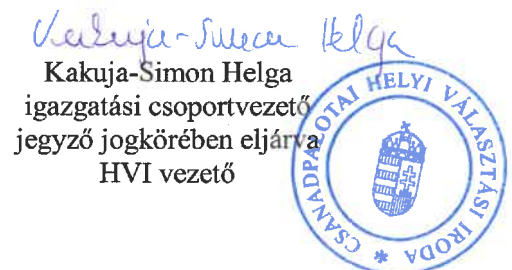 Kakuja-Simon Helga
Kakuja-Simon Helga
igazgatási csoportvezető
jegyző jogkörében eljárva
HVI vezető
CSANÁDPALOTAI HELYI VÁLASZTÁSI IRODA *